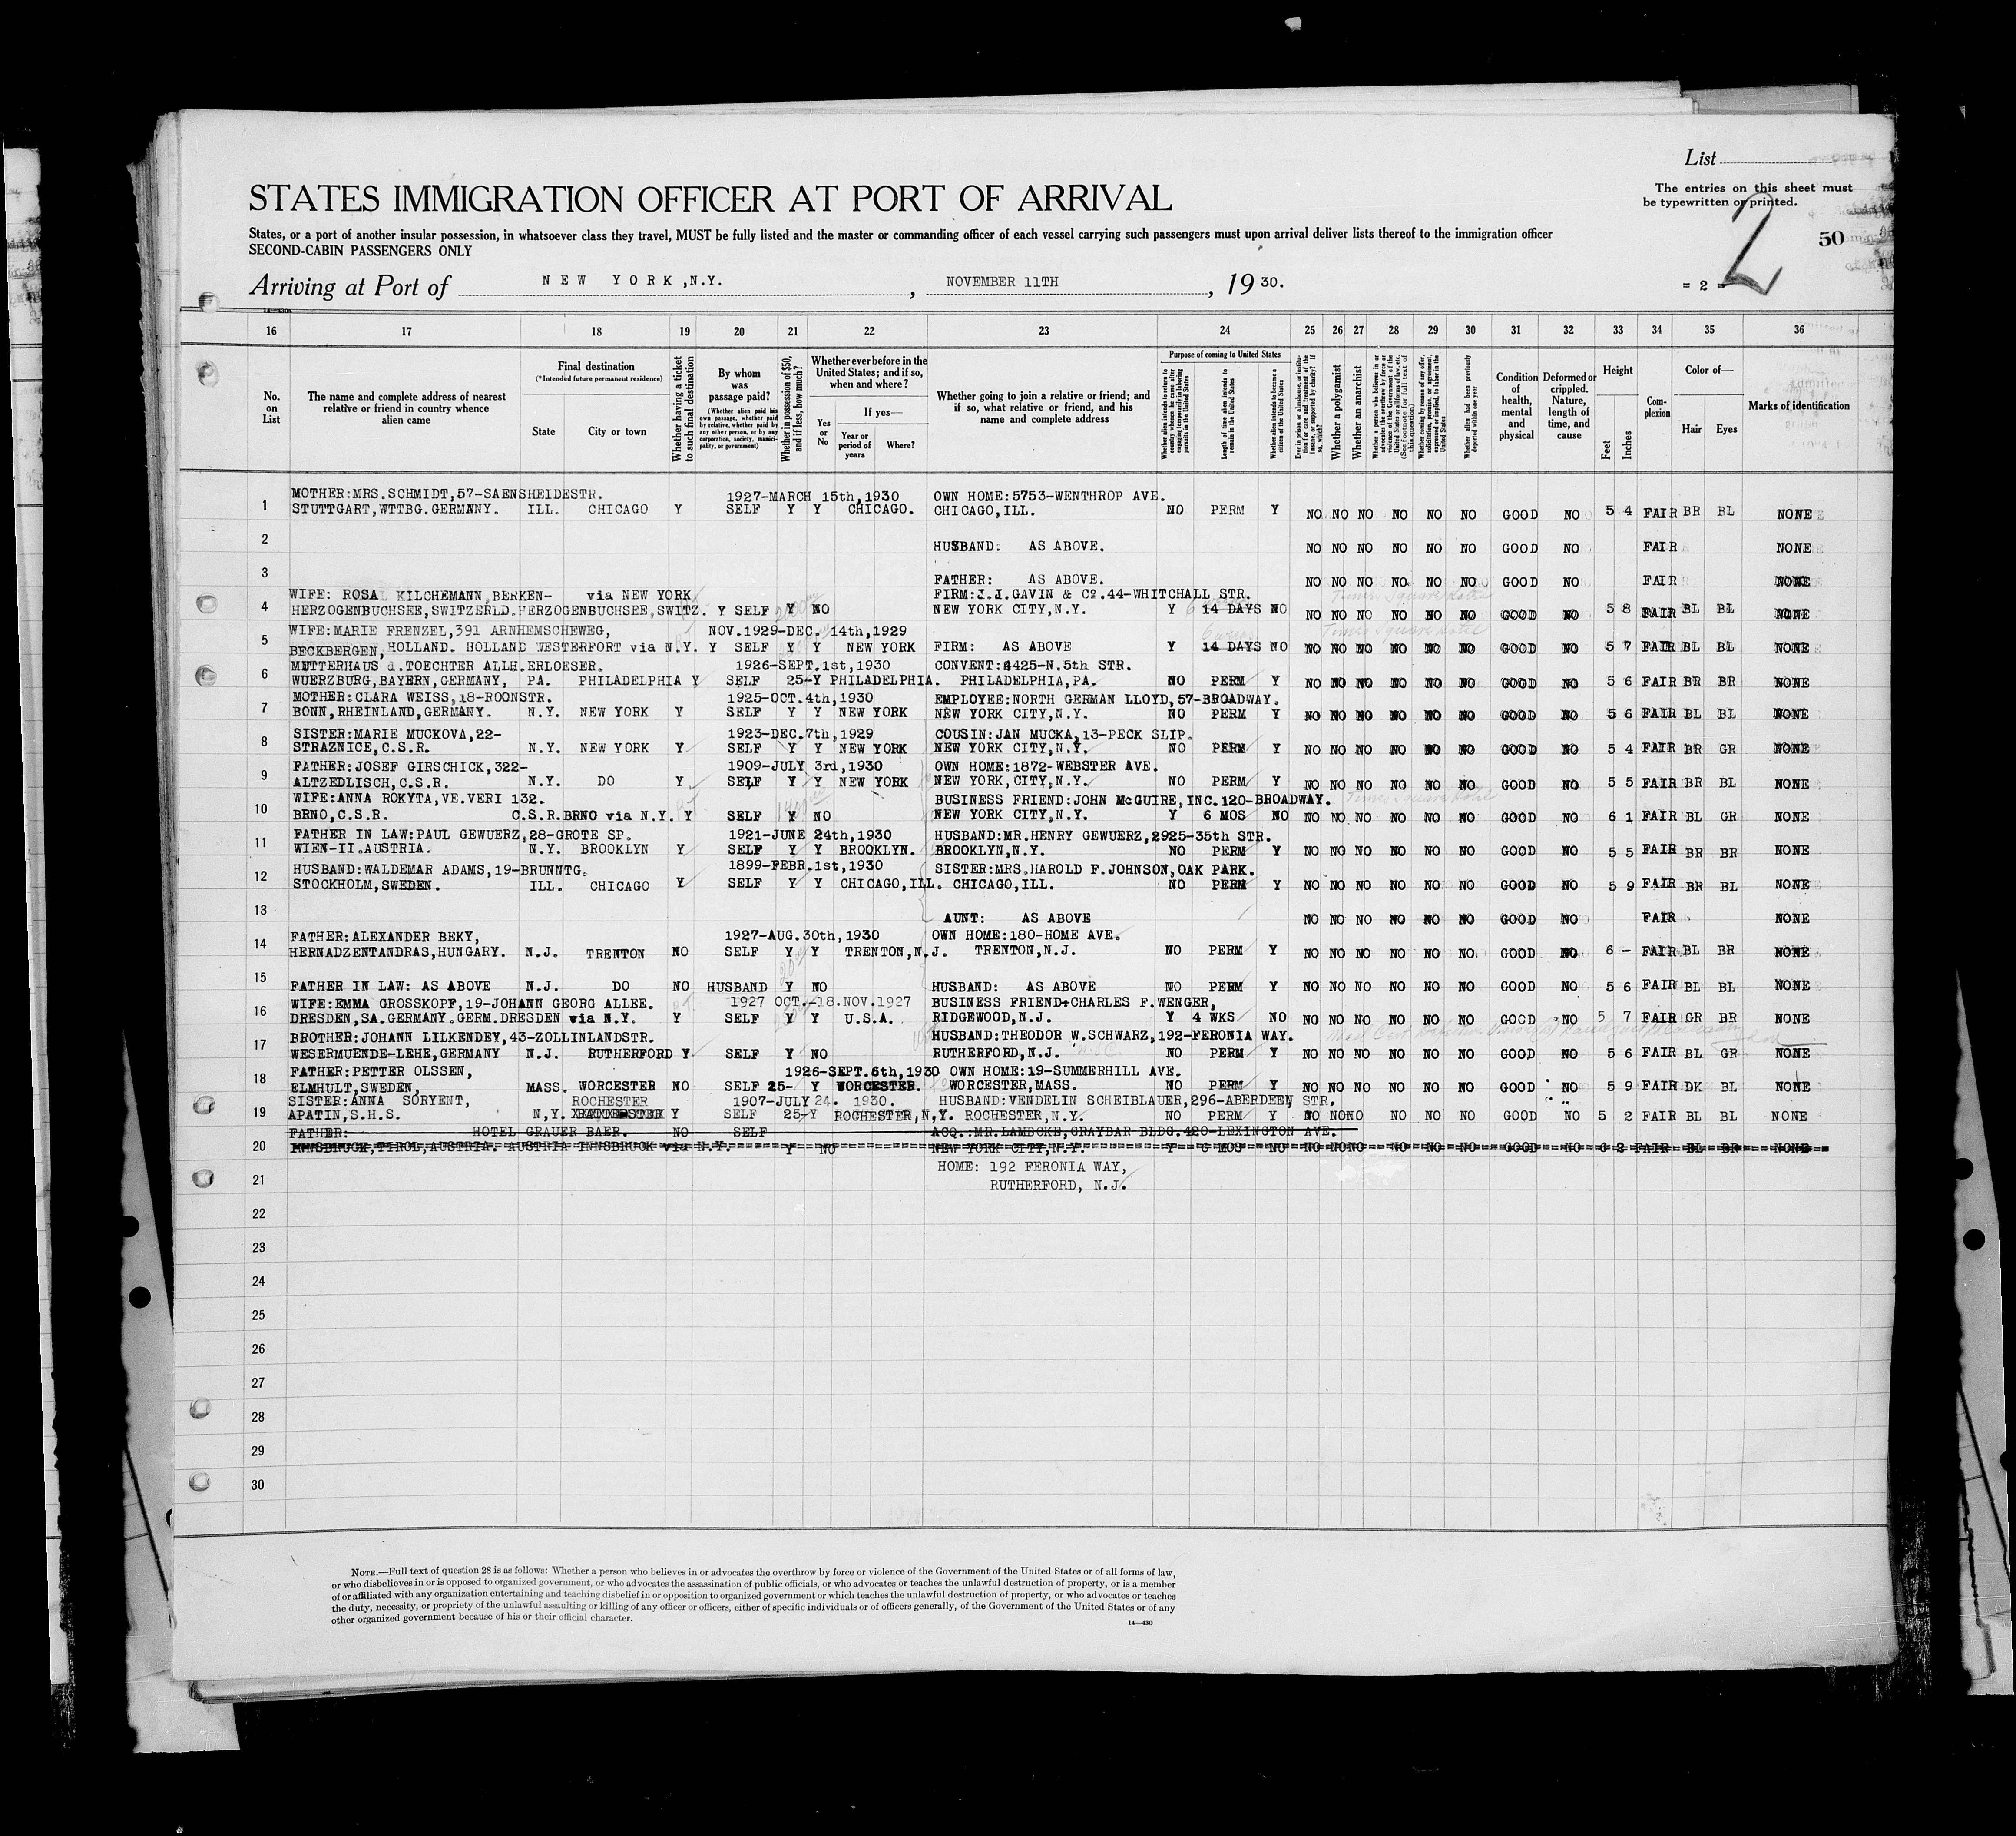 List
The entries on this sheet must
be typewritten or printed.
STATES IMMIGRATION OFFICER AT PORT OF ARRIVAL
States, or a port of another insular possession, in whatsoever class they travel, MUST be fully listed and the master or commanding officer of each vessel carrying such passengers must upon arrival deliver lists thereof to the immigration officer
SECOND-CABIN PASSENGERS ONLY
2
50
Arriving at Port of NEW YORK, N.Y. , NOVEMBER 11TH , 19 30.
= 2 =
16 17 18 19 20 21 22 23 24 25 26 27 28 29 30 31 32 33 34 35 36
No. on List
The name and complete address of nearest relative or friend in country whence alien came
Final destination
(*Intended future permanent residence)
State City or town
Whether having a ticket to such final destination
By whom was passage paid?
(Whether alien paid his own passage, whether paid by relative, whether paid by any other person, or by any corporation, society, municipality, or government)
Whether in possession of $50, and if less, how much?
Whether ever before in the United States; and if so, when and where?
Yes or No
If yes—
Year or period of years Where?
Whether going to join a relative or friend; and if so, what relative or friend, and his name and complete address
Purpose of coming to United States
Whether alien intends to return to country whence he came after engaging temporarily in laboring pursuits in the United States
Length of time alien intends to remain in the United States
Whether alien intends to become a citizen of the United States
Ever in prison or almshouse, or institution for care and treatment of the insane, or supported by charity? If so, which?
Whether a polygamist
Whether an anarchist
Whether a person who believes in or advocates the overthrow by force or violence of the Government of the United States or all forms of law, etc. (See footnote for full text of this question)
Whether coming by reason of any offer, solicitation, promise, or agreement, expressed or implied, to labor in the United States
Whether alien had been previously deported within one year
Condition of health, mental and physical
Deformed or crippled. Nature, length of time, and cause
Height
Feet Inches
Complexion
Color of—
Hair Eyes
Marks of identification
MOTHER:MRS.SCHMIDT,57-SAENSHEIDESTR. 1927-MARCH 15th,1930 OWN HOME:5753-WENTHROP AVE.
1 STUTTGART,WTTBG.GERMANY. ILL. CHICAGO Y SELF Y Y CHICAGO. CHICAGO,ILL. NO PERM Y NO NO NO NO NO NO GOOD NO 5 4 FAIR BR BL NONE
2 HUSBAND: AS ABOVE. NO NO NO NO NO NO GOOD NO FAIR NONE
3 FATHER: AS ABOVE. NO NO NO NO NO NO GOOD NO FAIR NONE
WIFE: ROSA KILCHEMANN,BERKEN- via NEW YORK FIRM:I.J.GAVIN & Co.44-WHITCHALL STR.
4 HERZOGENBUCHSEE,SWITZERLD.HERZOGENBUCHSEE,SWITZ. Y SELF Y NO NEW YORK CITY,N.Y. Y 14 DAYS NO NO NO NO NO NO NO GOOD NO 5 8 FAIR BL BL NONE
WIFE:MARIE FRENZEL,391 ARNHEMSCHEWEG, NOV.1929-DEC. 14th,1929
5 BECKBERGEN,HOLLAND. HOLLAND WESTERFORT via N.Y. Y SELF Y Y NEW YORK FIRM: AS ABOVE Y 14 DAYS NO NO NO NO NO NO NO GOOD NO 5 7 FAIR BL BL NONE
MUTTERHAUS d.TOECHTER ALLH.ERLOESER. 1926-SEPT.1st,1930 CONVENT:4425-N.5th STR.
6 WUERZBURG,BAYERN,GERMANY, PA. PHILADELPHIA Y SELF 25-Y PHILADELPHIA. PHILADELPHIA,PA. NO PERM Y NO NO NO NO NO NO GOOD NO 5 6 FAIR BR BR NONE
MOTHER:CLARA WEISS,18-ROONSTR. 1925-OCT.4th,1930 EMPLOYEE:NORTH GERMAN LLOYD,57-BROADWAY.
7 BONN,RHEINLAND,GERMANY. N.Y. NEW YORK Y SELF Y Y NEW YORK NEW YORK CITY,N.Y. NO PERM Y NO NO NO NO NO NO GOOD NO 5 6 FAIR BL BL NONE
SISTER:MARIE MUCKOVA,22- 1923-DEC.7th,1929 COUSIN:JAN MUCKA,13-PECK SLIP.
8 STRAZNICE,C.S.R. N.Y. NEW YORK Y SELF Y Y NEW YORK NEW YORK CITY,N.Y. NO PERM Y NO NO NO NO NO NO GOOD NO 5 4 FAIR BR GR NONE
FATHER:JOSEF GIRSCHICK,322- 1909-JULY 3rd,1930 OWN HOME:1872-WEBSTER AVE.
9 ALTZEDLISCH,C.S.R. N.Y. DO Y SELF Y Y NEW YORK NEW YORK,CITY,N.Y. NO PERM Y NO NO NO NO NO NO GOOD NO 5 5 FAIR BR BL NONE
WIFE:ANNA ROKYTA,VE.VERI 132. BUSINESS FRIEND:JOHN McGUIRE,INC.120-BROADWAY.
10 BRNO,C.S.R. C.S.R.BRNO via N.Y. Y SELF Y NO NEW YORK CITY,N.Y. Y 6 MOS NO NO NO NO NO NO NO GOOD NO 6 1 FAIR BL GR NONE
FATHER IN LAW:PAUL GEWUERZ,28-GROTE SP. 1921-JUNE 24th,1930 HUSBAND:MR.HENRY GEWUERZ,2925-35th STR.
11 WIEN-II.AUSTRIA. N.Y. BROOKLYN Y SELF Y Y BROOKLYN. BROOKLYN,N.Y. NO PERM Y NO NO NO NO NO NO GOOD NO 5 5 FAIR BR BR NONE
HUSBAND:WALDEMAR ADAMS,19-BRUNNTG. 1899-FEBR.1st,1930 SISTER:MRS.HAROLD F.JOHNSON,OAK PARK.
12 STOCKHOLM,SWEDEN. ILL. CHICAGO Y SELF Y Y CHICAGO,ILL. CHICAGO,ILL. NO PERM Y NO NO NO NO NO NO GOOD NO 5 9 FAIR BR BL NONE
13 AUNT: AS ABOVE NO NO NO NO NO NO GOOD NO FAIR NONE
FATHER:ALEXANDER BEKY, 1927-AUG.30th,1930 OWN HOME:180-HOME AVE.
14 HERNADZENTANDRAS,HUNGARY. N.J. TRENTON NO SELF Y Y TRENTON,N.J. TRENTON,N.J. NO PERM Y NO NO NO NO NO NO GOOD NO 6 - FAIR BL BR NONE
15 FATHER IN LAW: AS ABOVE N.J. DO NO HUSBAND Y NO HUSBAND: AS ABOVE NO PERM Y NO NO NO NO NO NO GOOD NO 5 6 FAIR BL BL NONE
WIFE:EMMA GROSSKOPF,19-JOHANN GEORG ALLEE. 1927 OCT.-18.NOV.1927 BUSINESS FRIEND:CHARLES F.WENGER,
16 DRESDEN,SA.GERMANY.GERM.DRESDEN via N.Y. Y SELF Y Y U.S.A. RIDGEWOOD,N.J. Y 4 WKS NO NO NO NO NO NO NO GOOD NO 5 7 FAIR GR BR NONE
BROTHER:JOHANN LILKENDEY,43-ZOLLINLANDSTR. HUSBAND:THEODOR W.SCHWARZ,192-FERONIA WAY.
17 WESERMUENDE-LEHE,GERMANY N.J. RUTHERFORD Y SELF Y NO RUTHERFORD,N.J. NO PERM Y NO NO NO NO NO NO GOOD NO 5 6 FAIR BL GR NONE
FATHER:PETTER OLSSEN, 1926-SEPT.6th,1930 OWN HOME:19-SUMMERHILL AVE.
18 ELMHULT,SWEDEN, MASS. WORCESTER NO SELF 25- Y WORCESTER. WORCESTER,MASS. NO PERM Y NO NO NO NO NO NO GOOD NO 5 9 FAIR DK BL NONE
SISTER:ANNA SORYENT, ROCHESTER 1907-JULY 24. 1930. HUSBAND:VENDELIN SCHEIBLAUER,296-ABERDEEN STR.
19 APATIN,S.H.S. N,Y. Y SELF 25-Y ROCHESTER,N,Y. ROCHESTER,N.Y. NO PERM Y NO NO NO NO NO NO GOOD NO 5 2 FAIR BL BL NONE
FATHER: HOTEL GRAUER BAER. NO SELF ACQ.:MR.LAMBOKE,GRAYBAR BLDG.420-LEXINGTON AVE.
20 INNSBRUCK,TIROL,AUSTRIA. AUSTRIA INNSBRUCK via N.Y. Y NO NEW YORK CITY,N.Y. Y 6 MOS NO NO NO NO NO NO NO GOOD NO 6 2 FAIR BL BR NONE
HOME: 192 FERONIA WAY,
21 RUTHERFORD, N.J.
22
23
24
25
26
27
28
29
30
NOTE.—Full text of question 28 is as follows: Whether a person who believes in or advocates the overthrow by force or violence of the Government of the United States or of all forms of law,
or who disbelieves in or is opposed to organized government, or who advocates the assassination of public officials, or who advocates or teaches the unlawful destruction of property, or is a member
of or affiliated with any organization entertaining and teaching disbelief in or opposition to organized government or which teaches the unlawful destruction of property, or who advocates or teaches
the duty, necessity, or propriety of the unlawful assaulting or killing of any officer or officers, either of specific individuals or of officers generally, of the Government of the United States or of any
other organized government because of his or their official character.
14—430